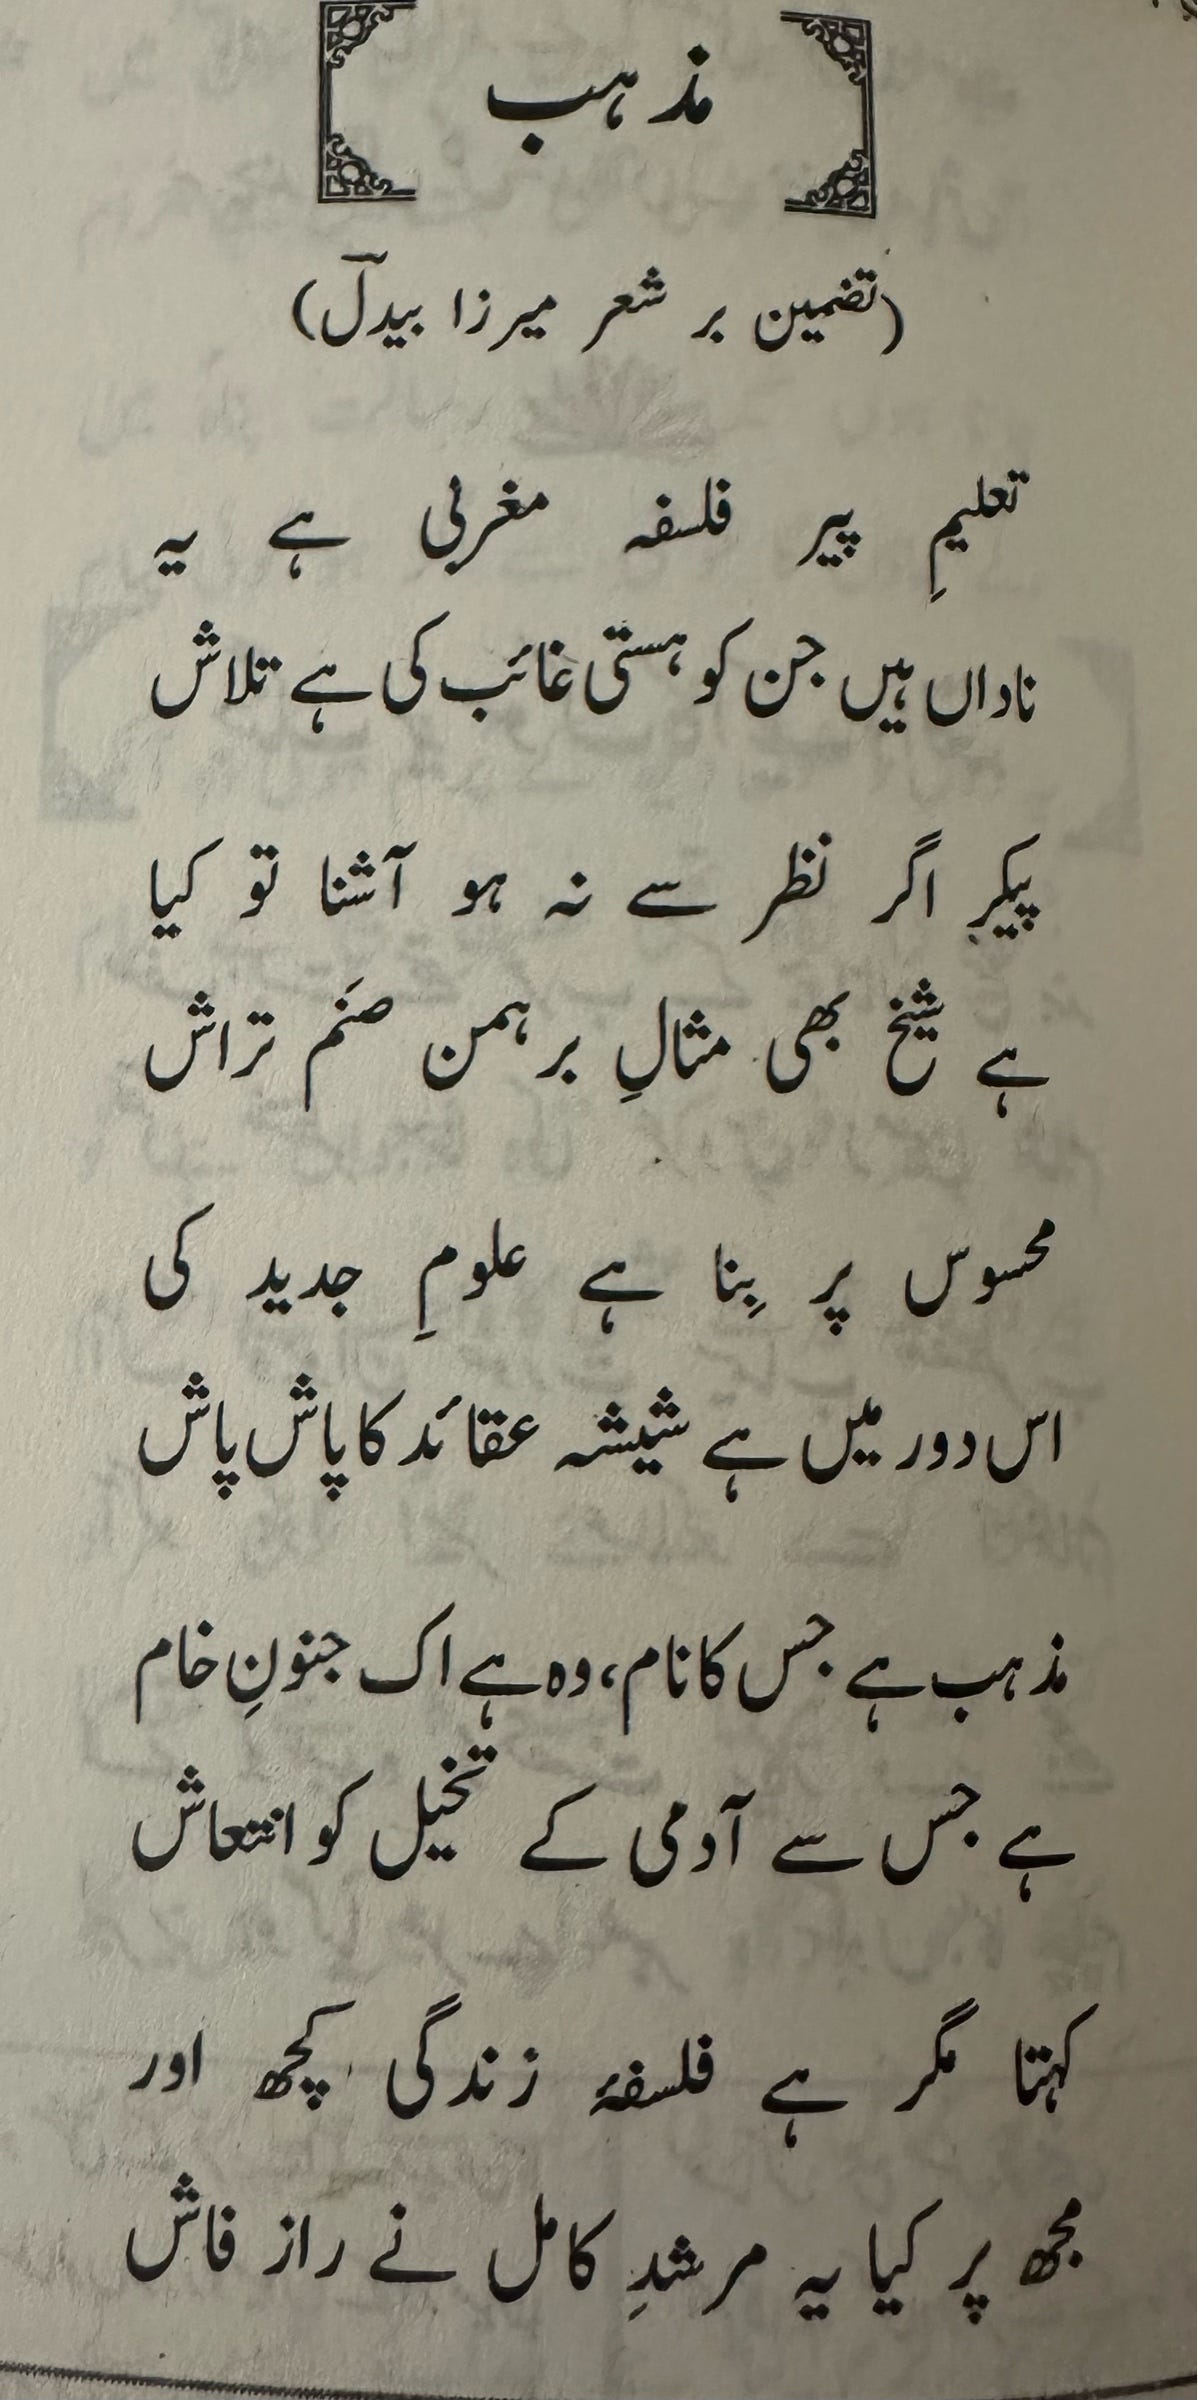 مذہب
(تضمین بر شعر میرزا بیدلؔ)
تعلیمِ پیر فلسفہ مغربی ہے یہ
ناداں ہیں جن کو ہستی غائب کی ہے تلاش
پیکر اگر نظر سے نہ ہو آشنا تو کیا
ہے شیخ بھی مثالِ برہمن صنَم تراش
محسوس پر بِنا ہے علومِ جدید کی
اس دور میں ہے شیشہ عقائد کا پاش پاش
مذہب ہے جس کا نام، وہ ہے اک جنونِ خام
ہے جس سے آدمی کے تخیل کو انتعاش
کہتا مگر ہے فلسفۂ زندگی کچھ اور
مجھ پر کیا یہ مرشدِ کامل نے راز فاش